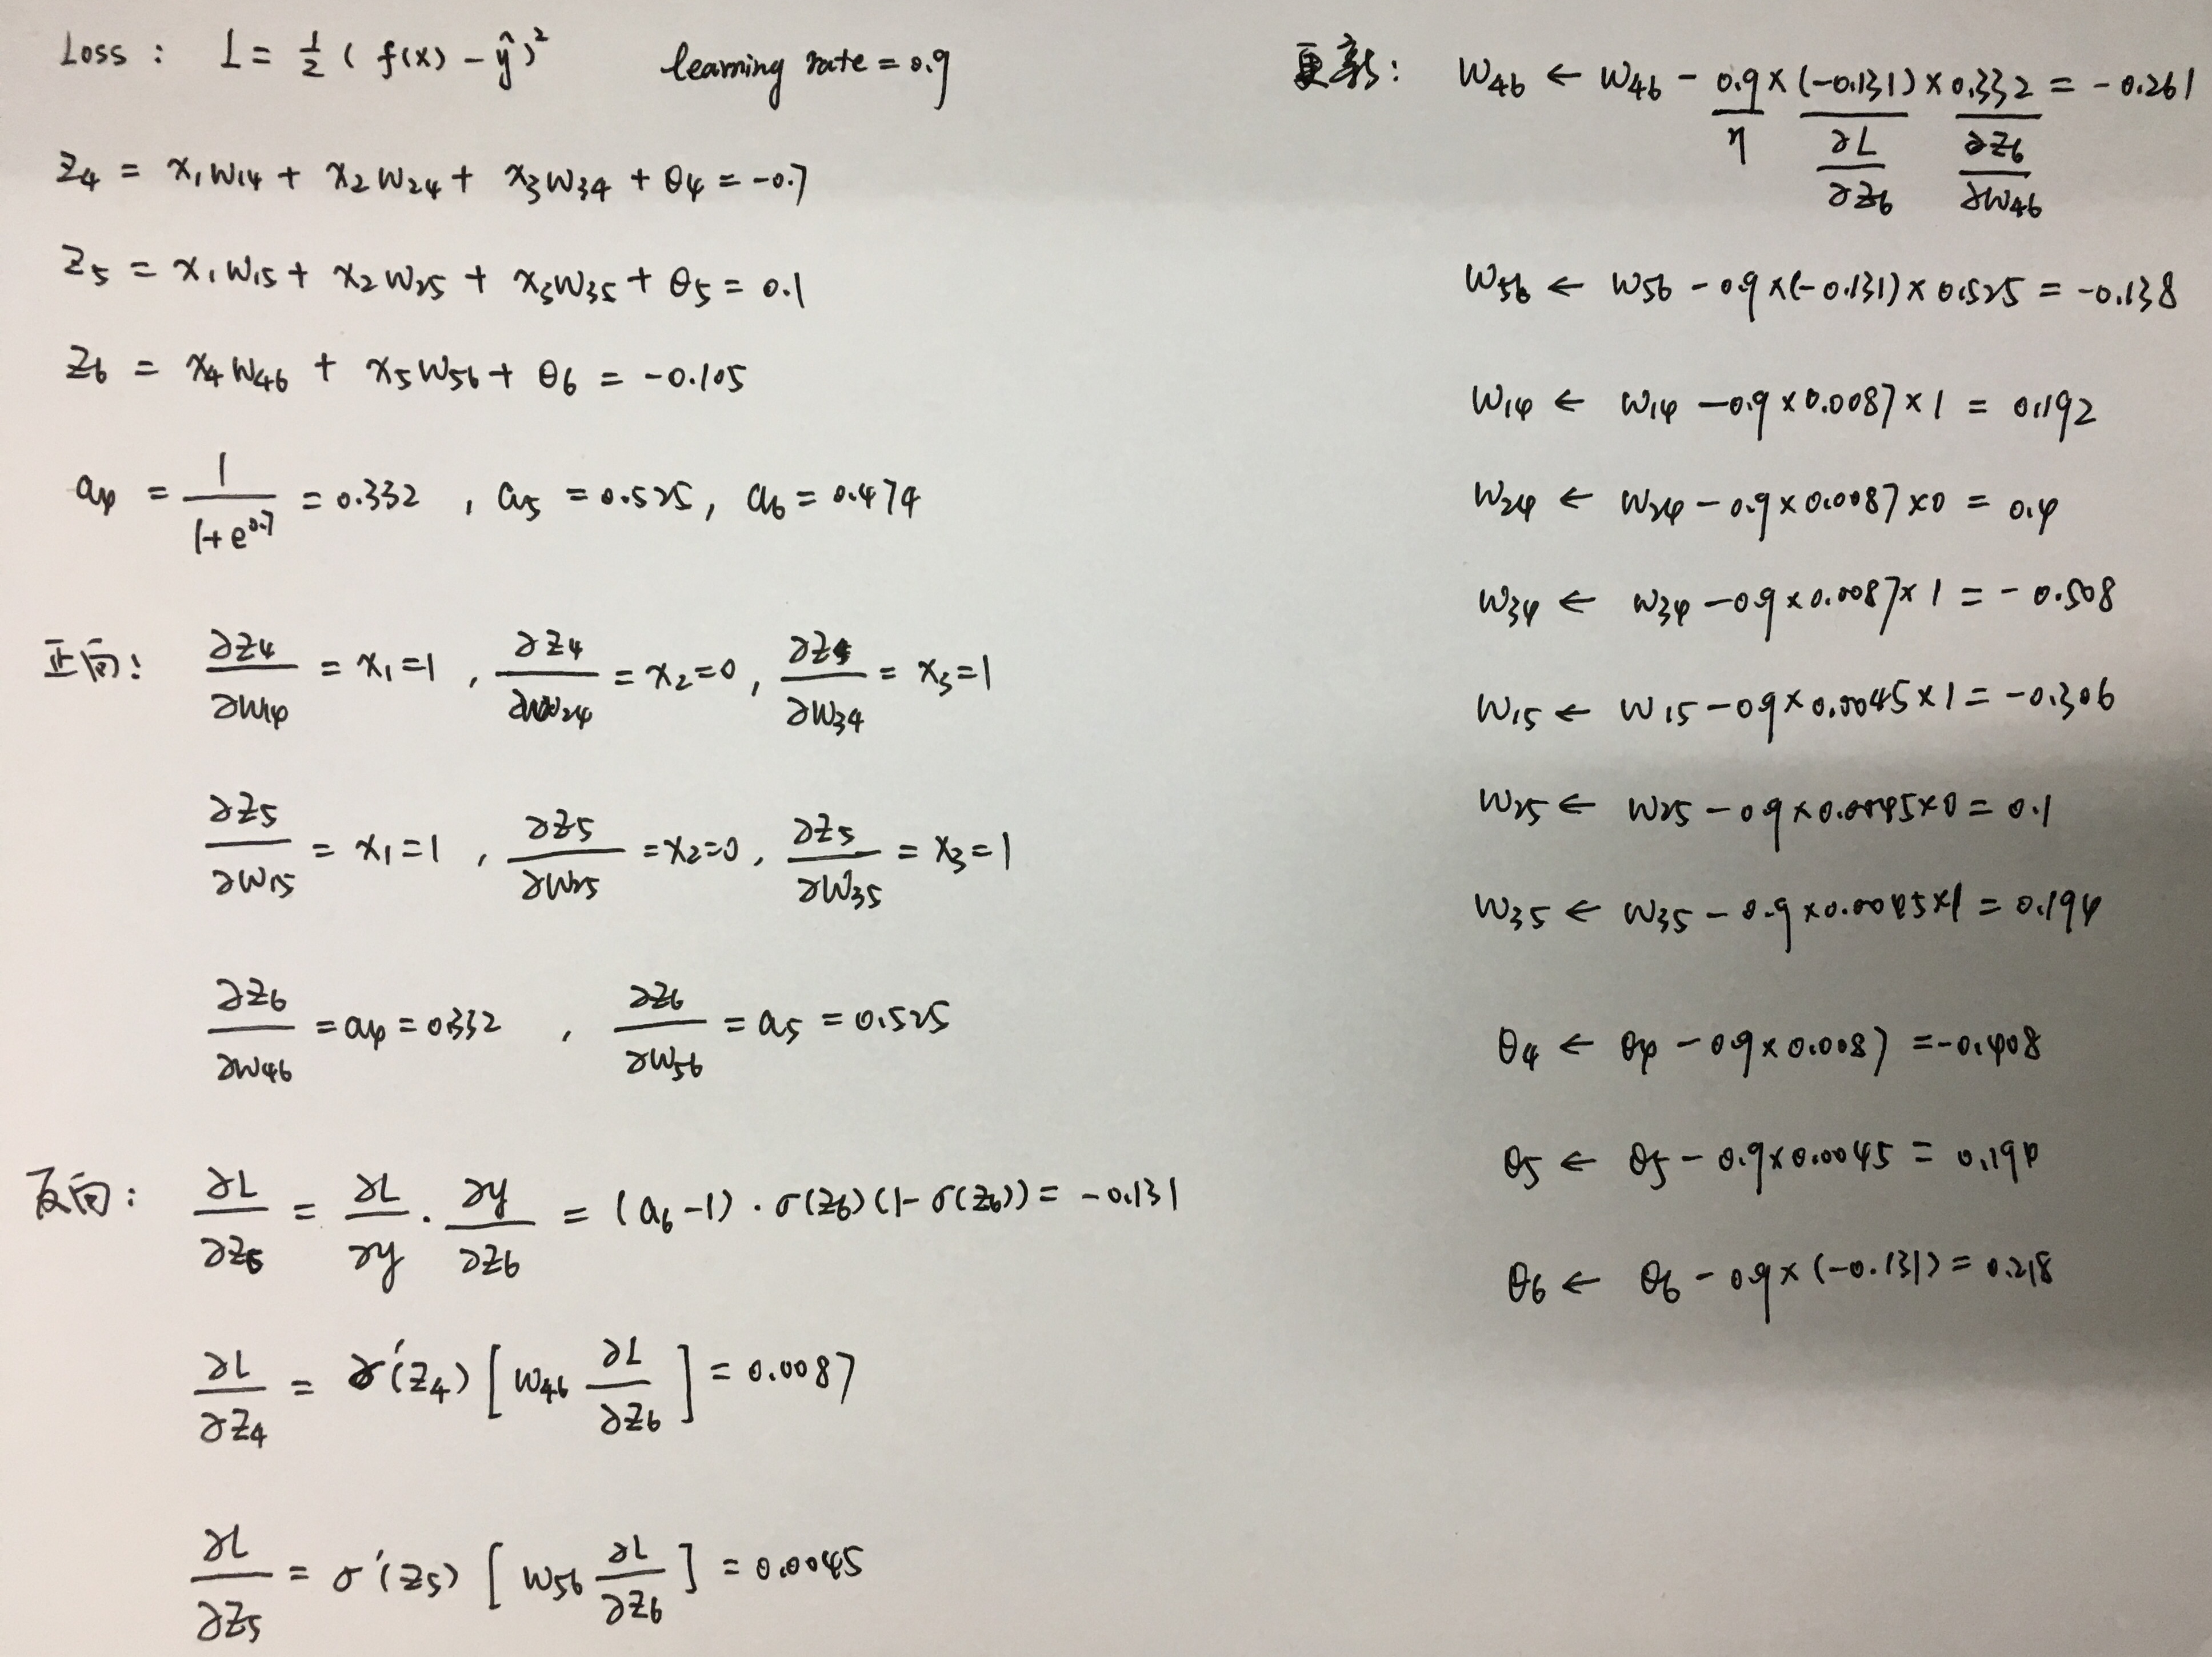 Loss : L = 1/2 ( f(x) − ŷ )² learning rate = 0.9
z₄ = x₁w₁₄ + x₂w₂₄ + x₃w₃₄ + θ₄ = −0.7
z₅ = x₁w₁₅ + x₂w₂₅ + x₃w₃₅ + θ₅ = 0.1
z₆ = x₄w₄₆ + x₅w₅₆ + θ₆ = −0.105
a₄ = 1/(1+e^0.7) = 0.332 , a₅ = 0.525, a₆ = 0.474
正向: ∂z₄/∂w₁₄ = x₁=1 , ∂z₄/∂w₂₄ = x₂=0, ∂z₄/∂w₃₄ = x₃=1
∂z₅/∂w₁₅ = x₁=1 , ∂z₅/∂w₂₅ =x₂=0, ∂z₅/∂w₃₅ = x₃=1
∂z₆/∂w₄₆ =a₄=0.332 , ∂z₆/∂w₅₆ = a₅ = 0.525
反向: ∂L/∂z₆ = ∂L/∂y · ∂y/∂z₆ = (a₆−1) · σ(z₆)(1−σ(z₆)) = −0.131
∂L/∂z₄ = σ′(z₄) [ w₄₆ ∂L/∂z₆ ] = 0.0087
∂L/∂z₅ = σ′(z₅) [ w₅₆ ∂L/∂z₆ ] = 0.0045
更新: w₄₆ ← w₄₆ − 0.9×(−0.131)×0.332 = −0.261
η ∂L/∂z₆ ∂z₆/∂w₄₆
w₅₆ ← w₅₆ − 0.9×(−0.131)×0.525 = −0.138
w₁₄ ← w₁₄ − 0.9×0.0087×1 = 0.192
w₂₄ ← w₂₄ − 0.9×0.0087×0 = 0.4
w₃₄ ← w₃₄ − 0.9×0.0087×1 = −0.508
w₁₅ ← w₁₅ − 0.9×0.0045×1 = −0.306
w₂₅ ← w₂₅ − 0.9×0.0045×0 = 0.1
w₃₅ ← w₃₅ − 0.9×0.0045×1 = 0.194
θ₄ ← θ₄ − 0.9×0.0087 = −0.408
θ₅ ← θ₅ − 0.9×0.0045 = 0.194
θ₆ ← θ₆ − 0.9×(−0.131) = 0.218